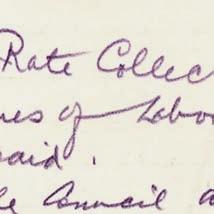 Rate Collec
res of Labo
paid.
he Council a